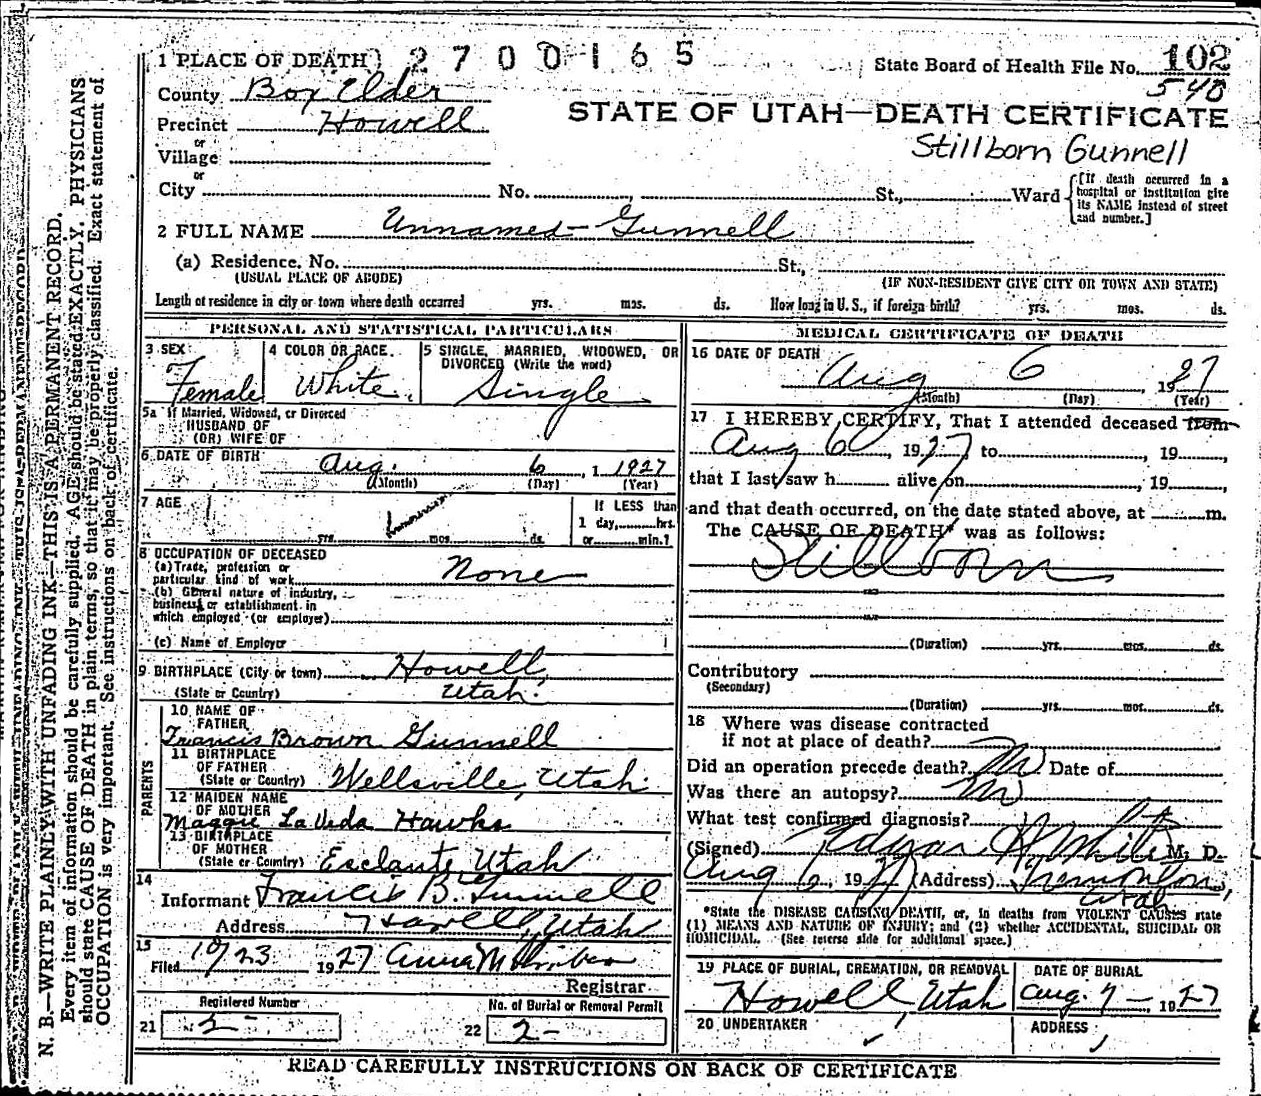 1 PLACE OF DEATH 2700165
State Board of Health File No. 102
548
County Box Elder
STATE OF UTAH—DEATH CERTIFICATE
Precinct Howell
Stillborn Gunnell
or
Village
or
City No. St., Ward
[If death occurred in a
hospital or institution give
its NAME instead of street
and number.]
2 FULL NAME Unnamed Gunnell
(a) Residence, No. St.,
(USUAL PLACE OF ABODE) (IF NON-RESIDENT GIVE CITY OR TOWN AND STATE)
Length of residence in city or town where death occurred yrs. mos. ds. How long in U. S., if foreign birth? yrs. mos. ds.
PERSONAL AND STATISTICAL PARTICULARS
3 SEX 4 COLOR OR RACE. 5 SINGLE, MARRIED, WIDOWED, OR
DIVORCED (Write the word)
Female White. Single
5a If Married, Widowed, or Divorced
HUSBAND OF
(OR) WIFE OF
6 DATE OF BIRTH Aug. 6, 1 1927
(Month) (Day) (Year)
7 AGE If LESS than
1 day, hrs.
yrs. mos. ds. or min.?
8 OCCUPATION OF DECEASED
(a) Trade, profession or
particular kind of work None
(b) General nature of industry,
business or establishment in
which employed (or employer)
(c) Name of Employer
9 BIRTHPLACE (City or town) Howell,
(State or Country) Utah.
PARENTS
10 NAME OF
FATHER
Francis Brown Gunnell
11 BIRTHPLACE
OF FATHER
(State or Country) Wellsville, Utah.
12 MAIDEN NAME
OF MOTHER
Maggie La Veda Hawks
13 BIRTHPLACE
OF MOTHER
(State or Country) Esclante, Utah
14
Informant Francis B. Gunnell
Address Howell, Utah
15
Filed 10/23 1927 Anna M
Registrar
Registered Number No. of Burial or Removal Permit
21 2- 22 2-
MEDICAL CERTIFICATE OF DEATH
16 DATE OF DEATH
Aug 6, 1927
(Month) (Day) (Year)
17 I HEREBY CERTIFY, That I attended deceased from
Aug 6, 1927, to, 19,
that I last saw h alive on, 19,
and that death occurred, on the date stated above, at m.
The CAUSE OF DEATH* was as follows:
Stillborn
(Duration) yrs. mos. ds.
Contributory
(Secondary)
(Duration) yrs. mos. ds.
18 Where was disease contracted
if not at place of death?
Did an operation precede death? No Date of
Was there an autopsy? No
What test confirmed diagnosis?
(Signed) Edgar H White M. D.
Aug 6, 1927 (Address) Tremonton,
Utah
*State the DISEASE CAUSING DEATH, or, in deaths from VIOLENT CAUSES state
(1) MEANS AND NATURE OF INJURY; and (2) whether ACCIDENTAL, SUICIDAL OR
HOMICIDAL. (See reverse side for additional space.)
19 PLACE OF BURIAL, CREMATION, OR REMOVAL DATE OF BURIAL
Howell, Utah Aug. 7- 1927
20 UNDERTAKER ADDRESS
READ CAREFULLY INSTRUCTIONS ON BACK OF CERTIFICATE
N. B.—WRITE PLAINLY WITH UNFADING INK—THIS IS A PERMANENT RECORD.
Every item of information should be carefully supplied. AGE should be stated EXACTLY. PHYSICIANS
should state CAUSE OF DEATH in plain terms, so that it may be properly classified. Exact statement of
OCCUPATION is very important. See instructions on back of certificate.